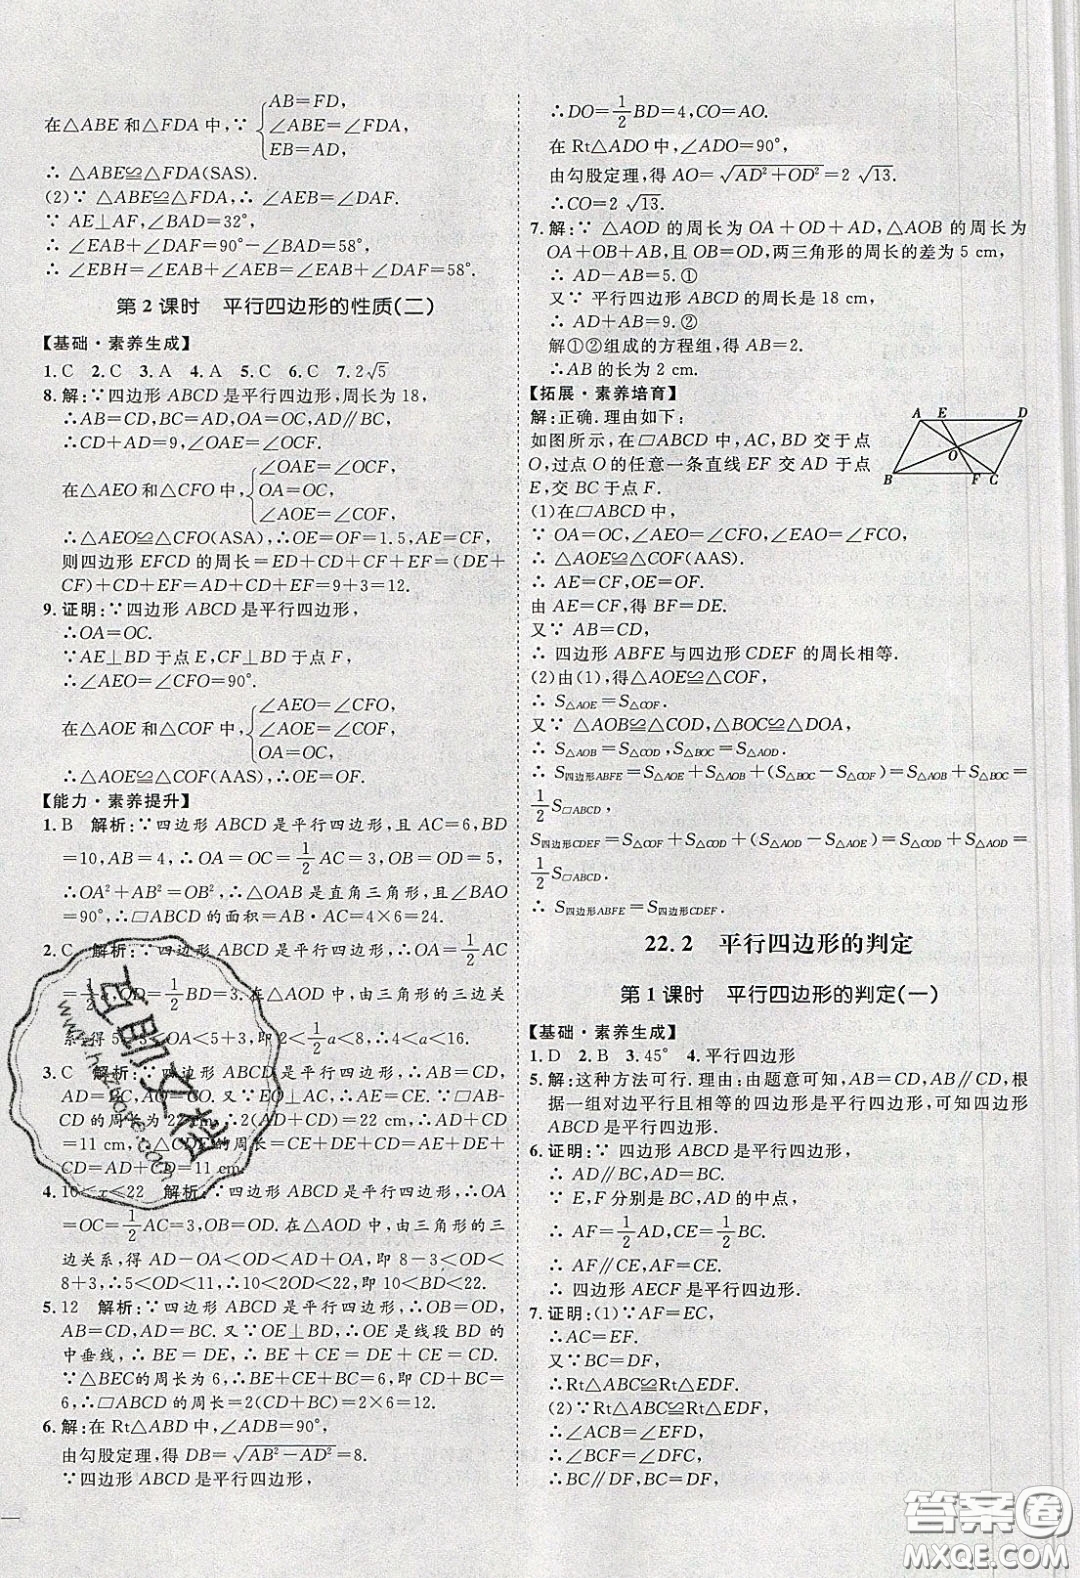 在△ABE和△FDA中,∵{AB=FD,
∠ABE=∠FDA,
EB=AD,
∴△ABE≌△FDA(SAS).
(2)∵△ABE≌△FDA,∴∠AEB=∠DAF.
∵AE⊥AF,∠BAD=32°,
∴∠EAB+∠DAF=90°-∠BAD=58°,
∴∠EBH=∠EAB+∠AEB=∠EAB+∠DAF=58°.
第2课时 平行四边形的性质(二)
【基础·素养生成】
1.C 2.C 3.A 4.A 5.C 6.C 7.2√5
8.解:∵四边形ABCD是平行四边形,周长为18,
∴AB=CD,BC=AD,OA=OC,AD∥BC,
∴CD+AD=9,∠OAE=∠OCF,
在△AEO和△CFO中,{∠OAE=∠OCF,
OA=OC,
∠AOE=∠COF,
∴△AEO≌△CFO(ASA),∴OE=OF=1.5,AE=CF,
则四边形EFCD的周长=ED+CD+CF+EF=(DE+
CF)+CD+EF=AD+CD+EF=9+3=12.
9.证明:∵四边形ABCD是平行四边形,
∴OA=OC.
∵AE⊥BD于点E,CF⊥BD于点F,
∴∠AEO=∠CFO=90°.
在△AOE和△COF中,{∠AEO=∠CFO,
∠AOE=∠COF,
OA=OC,
∴△AOE≌△COF(AAS),∴OE=OF.
【能力·素养提升】
1.B 解析:∵四边形ABCD是平行四边形,且AC=6,BD
=10,AB=4,∴OA=OC=1/2AC=3,OB=OD=5,
∴OA²+AB²=OB²,∴△OAB是直角三角形,∠BAO=
90°,∴□ABCD的面积=AB·AC=4×6=24.
2.C 解析:∵四边形ABCD是平行四边形,∴OA=1/2AC
=1/2a,OD=1/2BD=3.在△AOD中,由三角形的三边关
系,得5-3<OA<5+3,即2<1/2a<8,∴4<a<16.
3.C 解析:∵四边形ABCD是平行四边形,∴AB=CD,
BC=AD,OA=OC.又∵EO⊥AC,∴AE=CE.∵□AB-
CD的周长为22 cm,∴2(AD+CD)=22 cm,∴AD+CD
=11 cm,∴△CDE的周长=CE+DE+CD=AE+DE+
CD=AD+CD=11 cm.
4.10<x<22 解析:∵四边形ABCD是平行四边形,∴OA
=OC=1/2AC=3,OB=OD.在△AOD中,由三角形的三
边关系,得AD-OA<OD<AD+OA,即8-3<OD<
8+3,∴5<OD<11,∴10<2OD<22,即10<BD<22.
5.12 解析:∵四边形ABCD是平行四边形,∴OB=OD,
AB=CD,AD=BC.又∵OE⊥BD,∴OE是线段BD的
中垂线,∴BE=DE,∴BE+CE=DE+CE=CD=6.
∵△BEC的周长为6,∴BE+CE+BC=DC+BC=
6,∴□ABCD的周长=2(CD+BC)=2×6=12.
6.解:在Rt△ABD中,∠ADB=90°,
由勾股定理,得DB=√(AB²-AD²)=8.
∵四边形ABCD是平行四边形,
∴DO=1/2BD=4,CO=AO.
在Rt△ADO中,∠ADO=90°,
由勾股定理,得AO=√(AD²+OD²)=2√13.
∴CO=2√13.
7.解:∵△AOD的周长为OA+OD+AD,△AOB的周长为
OA+OB+AB,且OB=OD,两三角形的周长的差为5 cm,
∴AD-AB=5.①
又∵平行四边形ABCD的周长是18 cm,
∴AD+AB=9.②
解①②组成的方程组,得AB=2.
∴AB的长为2 cm.
【拓展·素养培育】
解:正确.理由如下:
如图所示,在□ABCD中,AC,BD交于点
O,过点O的任意一条直线EF交AD于点
E,交BC于点F.
A E D
O
B F C
(1)在□ABCD中,
∵OA=OC,∠AEO=∠CFO,∠EAO=∠FCO,
∴△AOE≌△COF(AAS).
∴AE=CF,OE=OF.
由AE=CF,得BF=DE.
又∵AB=CD,
∴四边形ABFE与四边形CDEF的周长相等.
(2)由(1),得△AOE≌△COF,
∴S△AOE=S△COF.
又∵△AOB≌△COD,△BOC≌△DOA,
∴S△AOB=S△COD,S△BOC=S△AOD.
∴S四边形ABFE=S△AOE+S△AOB+(S△BOC-S△COF)=S△AOB+S△BOC=
1/2S□ABCD,
S四边形CDEF=S△COF+S△COD+(S△AOD-S△AOE)=S△COD+S△AOD=
1/2S□ABCD.
∴S四边形ABFE=S四边形CDEF.
22.2 平行四边形的判定
第1课时 平行四边形的判定(一)
【基础·素养生成】
1.D 2.B 3.45° 4.平行四边形
5.解:这种方法可行.理由:由题意可知,AB=CD,AB∥CD,根
据一组对边平行且相等的四边形是平行四边形,可知四边形
ABCD是平行四边形.
6.证明:∵四边形ABCD是平行四边形,
∴AD∥BC,AD=BC.
∵E,F分别是BC,AD的中点,
∴AF=1/2AD,CE=1/2BC.
∴AF∥CE,AF=CE.
∴四边形AECF是平行四边形.
7.证明:(1)∵AF=EC,
∴AC=EF.
又∵BC=DF,
∴Rt△ABC≌Rt△EDF.
(2)∵Rt△ABC≌Rt△EDF,
∴∠ACB=∠EFD.
∴∠BCF=∠DFC.
∴BC∥DF.又∵BC=DF,
互助文档
www.hzuobe.com
答案圈
MXQE.COM